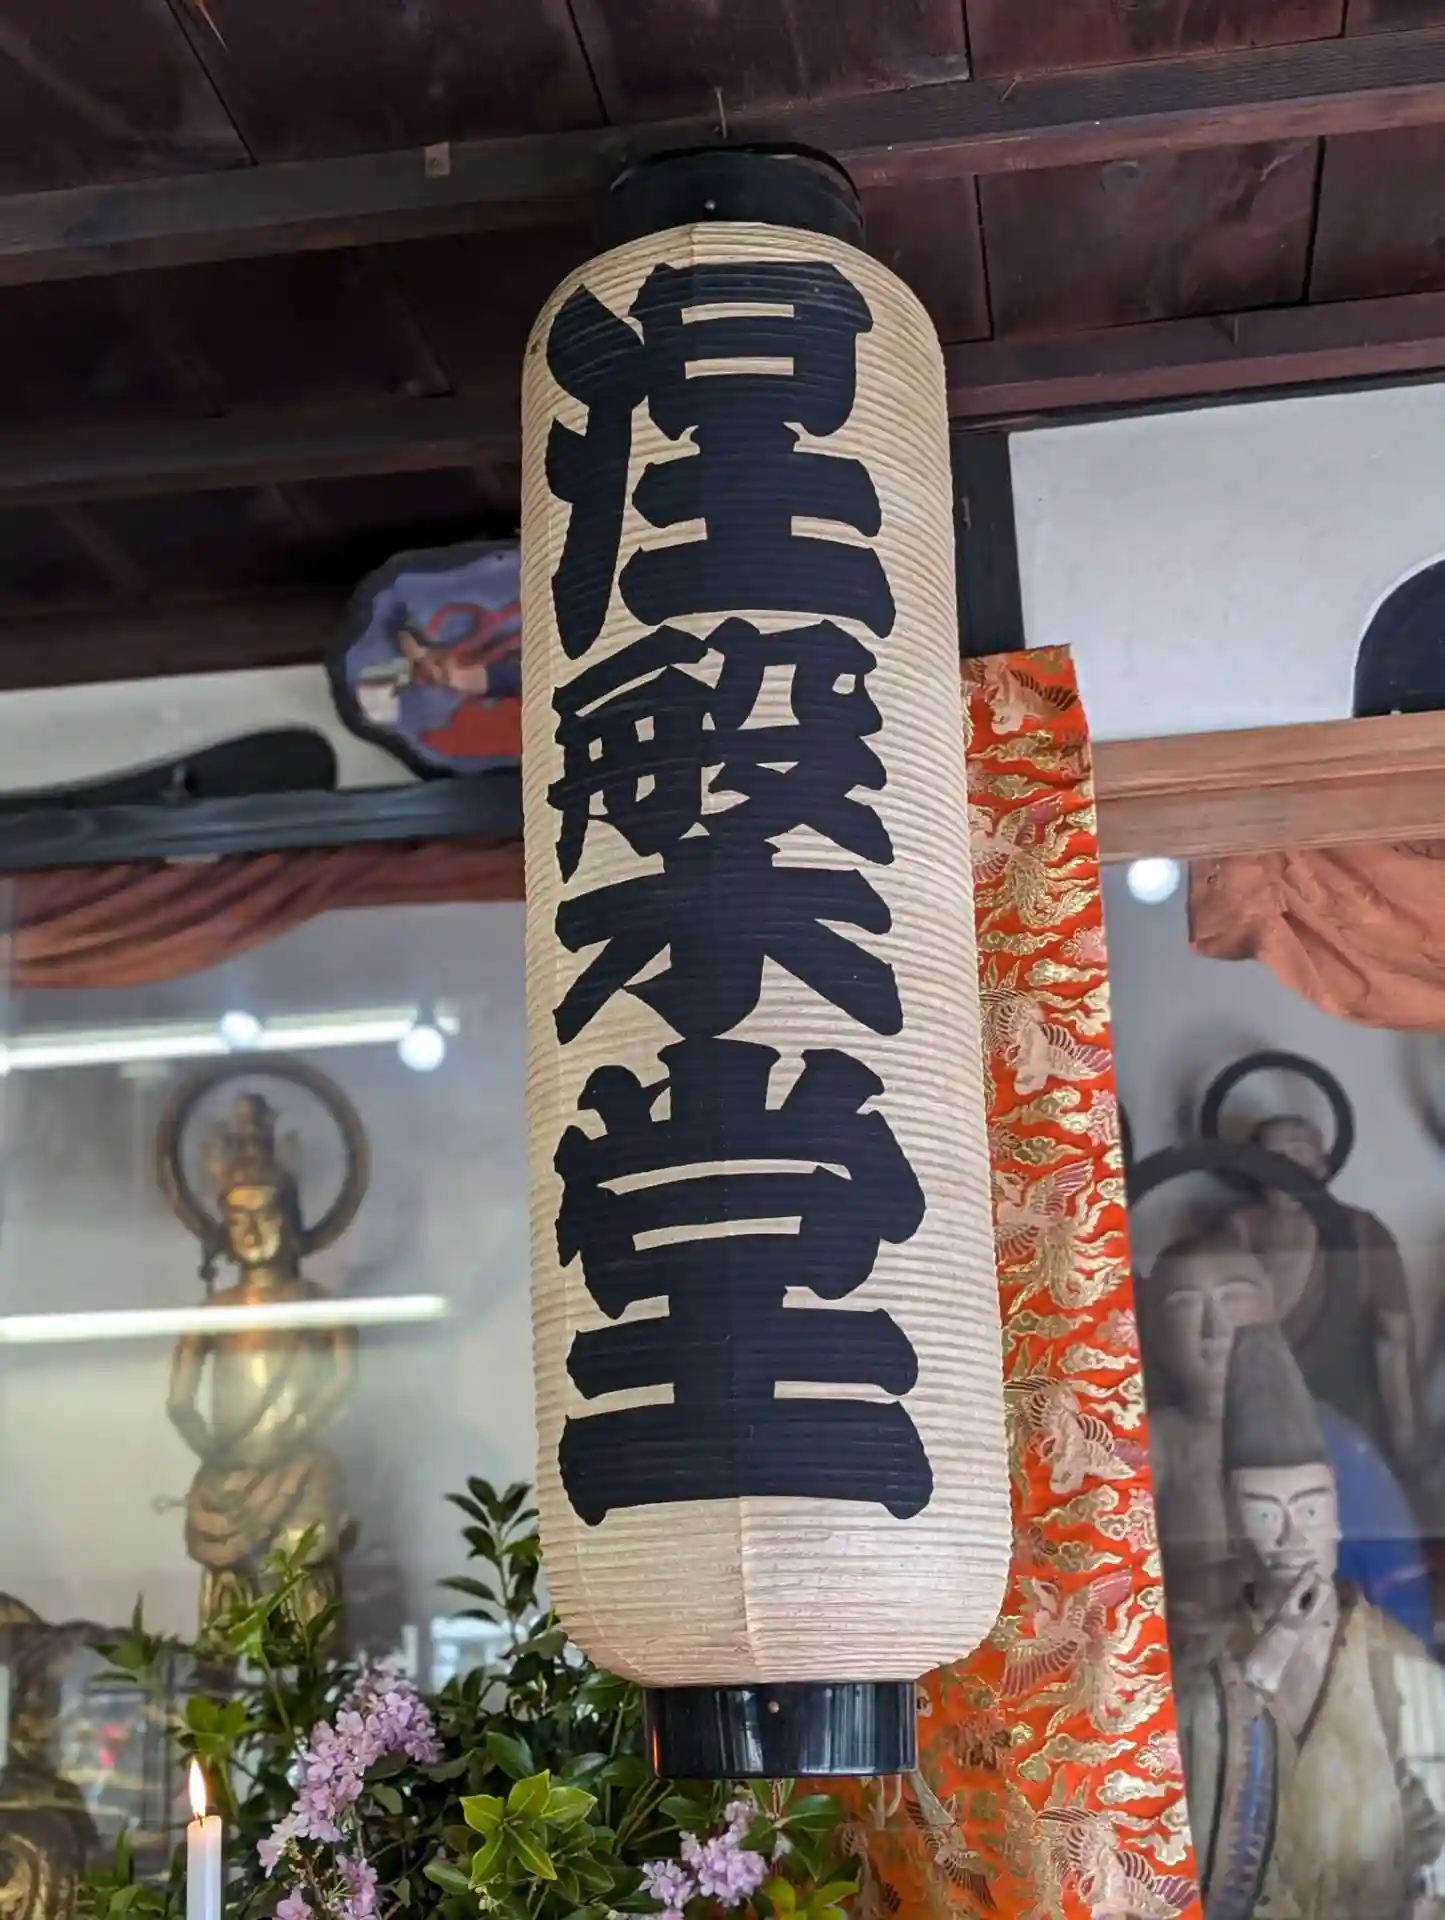 涅槃堂